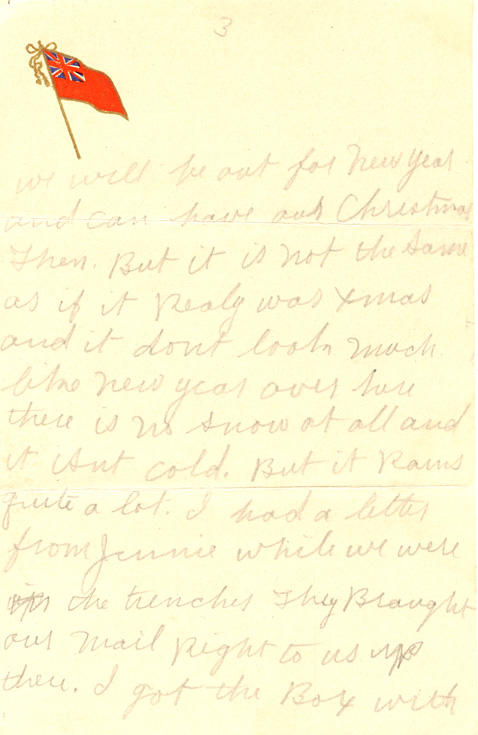 3
we will be out for New year
and can have our Christmas
Then. But it is not the same
as if it Realy was Xmas
and it dont look much
like New year over here
there is no snow at all and
it isnt cold. But it Rains
quite a lot. I had a letter
from Jennie while we were
in the trenches They Braught
our Mail Right to us up
there. I got the Box with